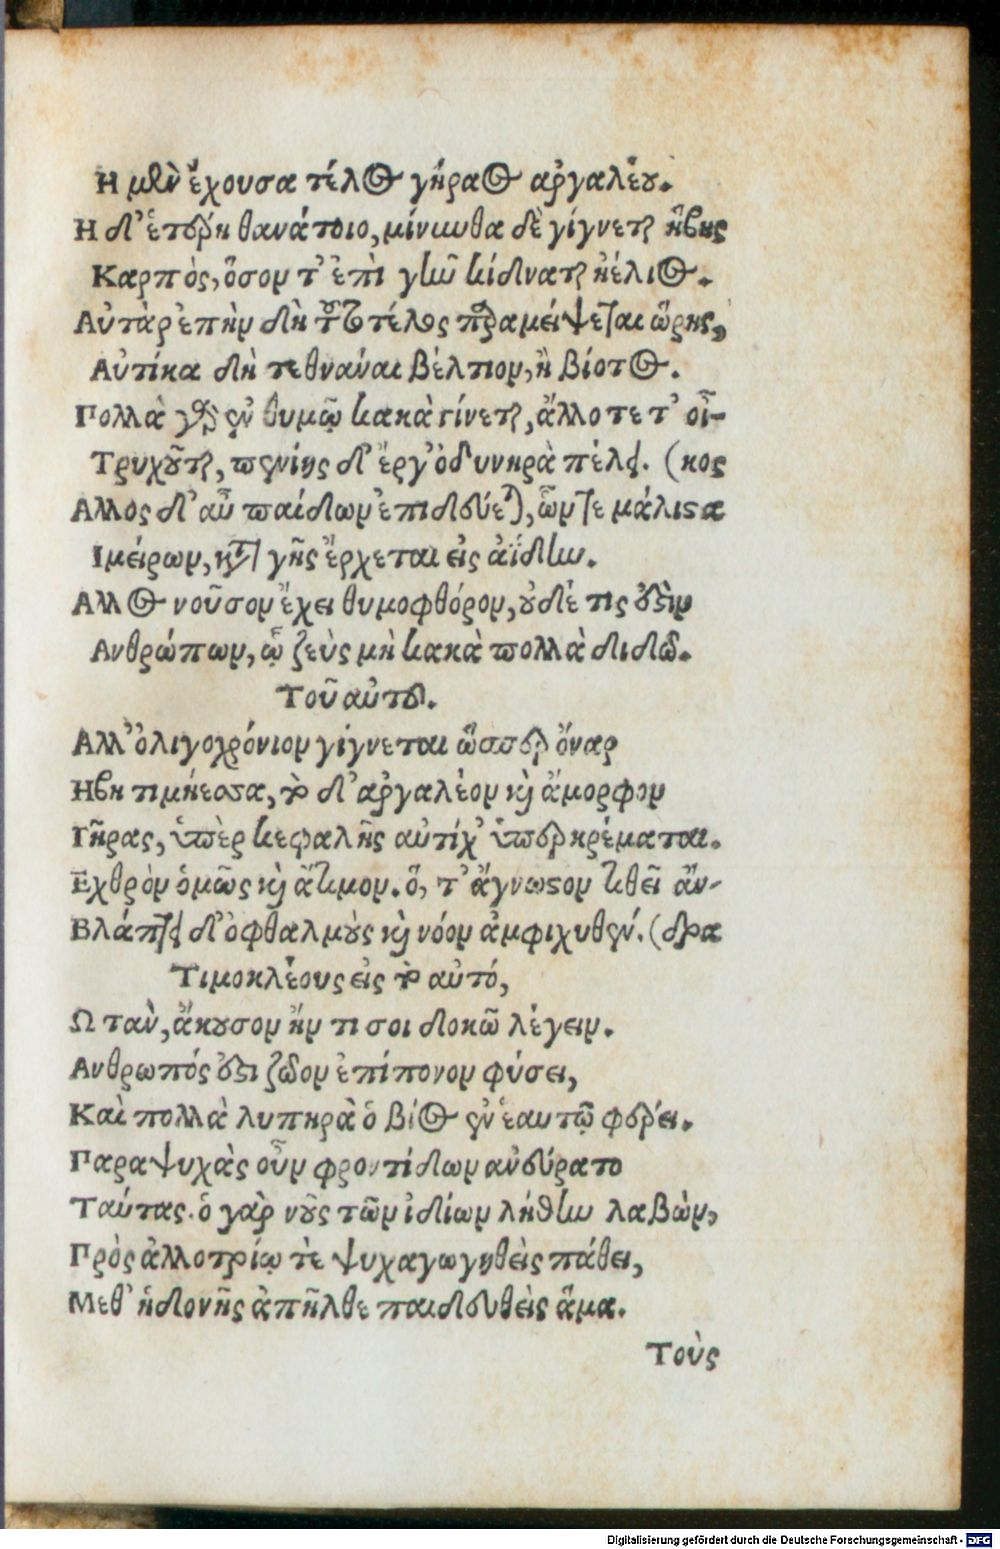 Η μὲν ἔχουσα τέλος γήραος ἀργαλέου.
Η δ' ἑτέρη θανάτοιο, μίνυνθα δὲ γίγνεται ἥβης
Καρπὸς, ὅσον τ' ἐπὶ γῆν κίδναται ἠέλιος.
Αὐτὰρ ἐπὴν δὴ τοῦτο τέλος παραμείψεται ὥρης,
Αὐτίκα δὴ τεθνάναι βέλτιον, ἢ βίοτος.
Πολλὰ γὰρ ἐν θυμῷ κακὰ γίνεται, ἄλλοτε τ' οἶ-
Τρυχοῦται, πενίης δ' ἔργ' ὀδυνηρὰ πέλει. (κος
Αλλος δ' αὖ παίδων ἐπιδεύεται, ὧντε μάλιστα
Ιμείρων, κατὰ γῆς ἔρχεται εἰς ἀΐδην.
Αλλος νοῦσον ἔχει θυμοφθόρον, οὐδέ τις ἐστὶν
Ανθρώπων, ᾧ ζεὺς μὴ κακὰ πολλὰ διδῶ.
Τοῦ αὐτοῦ.
Αλλ' ὀλιγοχρόνιον γίγνεται ὥσπερ ὄναρ
Ηβη τιμήεσσα, τὸ δ' ἀργαλέον καὶ ἄμορφον
Γῆρας, ὑπὲρ κεφαλῆς αὐτίχ' ὑπερκρέμαται.
Εχθρὸν ὁμῶς καὶ ἄτιμον. ὅ, τ' ἄγνωστον τιθεῖ ἄν-
Βλάπτει δ' ὀφθαλμοὺς καὶ νόον ἀμφιχυθέν. (δρα
Τιμοκλέους εἰς τὸ αὐτό,
Ω ταὺ, ἄκουσον ἤν τι σοι δοκῶ λέγειν.
Ανθρωπός ἐστι ζῶον ἐπίπονον φύσει,
Καὶ πολλὰ λυπηρὰ ὁ βίος ἐν ἑαυτῷ φέρει.
Παραψυχὰς οὖν φροντίδων ἀνεύρατο
Ταύτας. ὁ γὰρ νοῦς τῶν ἰδίων λήθην λαβὼν,
Πρὸς ἀλλοτρίῳ τὲ ψυχαγωγηθεὶς πάθει,
Μεθ' ἡδονῆς ἀπῆλθε παιδευθεὶς ἅμα.
Τοὺς
Digitalisierung gefördert durch die Deutsche Forschungsgemeinschaft - DFG